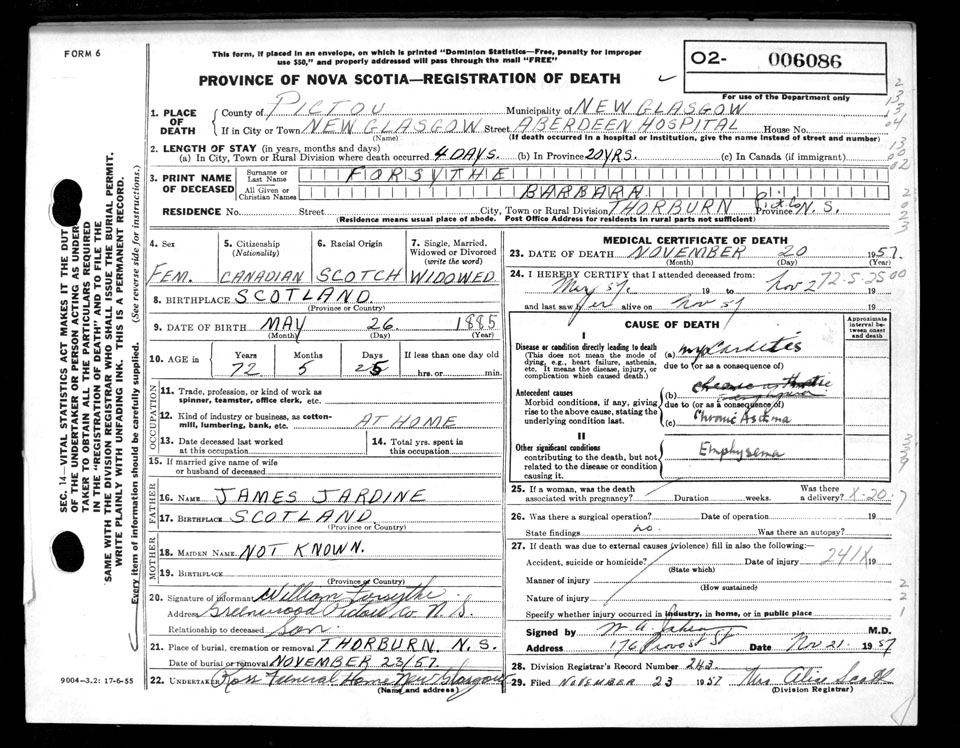 FORM 6
This form, if placed in an envelope, on which is printed "Dominion Statistics—Free, penalty for improper
use $50," and properly addressed will pass through the mail "FREE"
PROVINCE OF NOVA SCOTIA—REGISTRATION OF DEATH
O2- 006086
For use of the Department only
1. PLACE OF DEATH
County of PICTOU Municipality of NEW GLASGOW
If in City or Town NEW GLASGOW Street ABERDEEN HOSPITAL House No.
(Name) (If death occurred in a hospital or institution, give the name instead of street and number)
2. LENGTH OF STAY (in years, months and days)
(a) In City, Town or Rural Division where death occurred 4 DAYS. (b) In Province 20 YRS. (c) In Canada (if immigrant)
3. PRINT NAME OF DECEASED
Surname or Last Name FORSYTHE
All Given or Christian Names BARBARA
RESIDENCE No. Street City, Town or Rural Division THORBURN Pict. Co Province N.S.
(Residence means usual place of abode. Post Office Address for residents in rural parts not sufficient)
4. Sex
FEM.
5. Citizenship (Nationality)
CANADIAN
6. Racial Origin
SCOTCH
7. Single, Married, Widowed or Divorced (write the word)
WIDOWED
8. BIRTHPLACE SCOTLAND.
(Province or Country)
9. DATE OF BIRTH MAY 26 1885
(Month) (Day) (Year)
10. AGE in Years Months Days If less than one day old
72 5 25 hrs. or min.
OCCUPATION
11. Trade, profession, or kind of work as spinner, teamster, office clerk, etc.
12. Kind of industry or business, as cotton-mill, lumbering, bank, etc. AT HOME
13. Date deceased last worked at this occupation
14. Total yrs. spent in this occupation
15. If married give name of wife or husband of deceased
FATHER
16. Name JAMES JARDINE
17. Birthplace SCOTLAND.
(Province or Country)
MOTHER
18. Maiden Name NOT KNOWN.
19. Birthplace
(Province or Country)
20. Signature of informant William Forsythe
Address Greenwood Pictou Co. N.S.
Relationship to deceased Son.
21. Place of burial, cremation or removal THORBURN. N.S.
Date of burial or removal NOVEMBER 23/57.
22. UNDERTAKER Ross Funeral Home New Glasgow
(Name and address)
MEDICAL CERTIFICATE OF DEATH
23. DATE OF DEATH NOVEMBER 20 1957.
(Month) (Day) (Year)
24. I HEREBY CERTIFY that I attended deceased from:
May 57. 19 to Nov 2 19
72-5-25 00
and last saw her alive on Nov 57 19
CAUSE OF DEATH
Approximate interval between onset and death
I
Disease or condition directly leading to death
(This does not mean the mode of dying, e.g., heart failure, asthenia, etc. It means the disease, injury, or complication which caused death.)
(a) myocarditis
due to (or as a consequence of)
Antecedent causes
Morbid conditions, if any, giving rise to the above cause, stating the underlying condition last.
(b)
due to (or as a consequence of)
(c) Chronic Asthma
II
Other significant conditions
contributing to the death, but not related to the disease or condition causing it.
Emphysema
25. If a woman, was the death associated with pregnancy? Duration weeks. Was there a delivery?
X-20-7
26. Was there a surgical operation? Date of operation 19
State findings no. Was there an autopsy?
27. If death was due to external causes (violence) fill in also the following:-
Accident, suicide or homicide? Date of injury 19
(State which)
241X
Manner of injury
(How sustained)
Nature of injury
Specify whether injury occurred in industry, in home, or in public place
Signed by M.D.
Address 176 Provost St Date Nov 21. 1957
28. Division Registrar's Record Number 243
29. Filed NOVEMBER 23 1957 Mrs Alice Scott
(Division Registrar)
SEC. 14—VITAL STATISTICS ACT MAKES IT THE DUTY
OF THE UNDERTAKER OR PERSON ACTING AS UNDER-
TAKER TO OBTAIN ALL THE PARTICULARS REQUIRED
IN THE "REGISTRATION OF DEATH" AND TO FILE THE
SAME WITH THE DIVISION REGISTRAR WHO SHALL ISSUE THE BURIAL PERMIT.
WRITE PLAINLY WITH UNFADING INK. THIS IS A PERMANENT RECORD.
Every item of information should be carefully supplied. (See reverse side for instructions.)
9004-3.2: 17-6-55